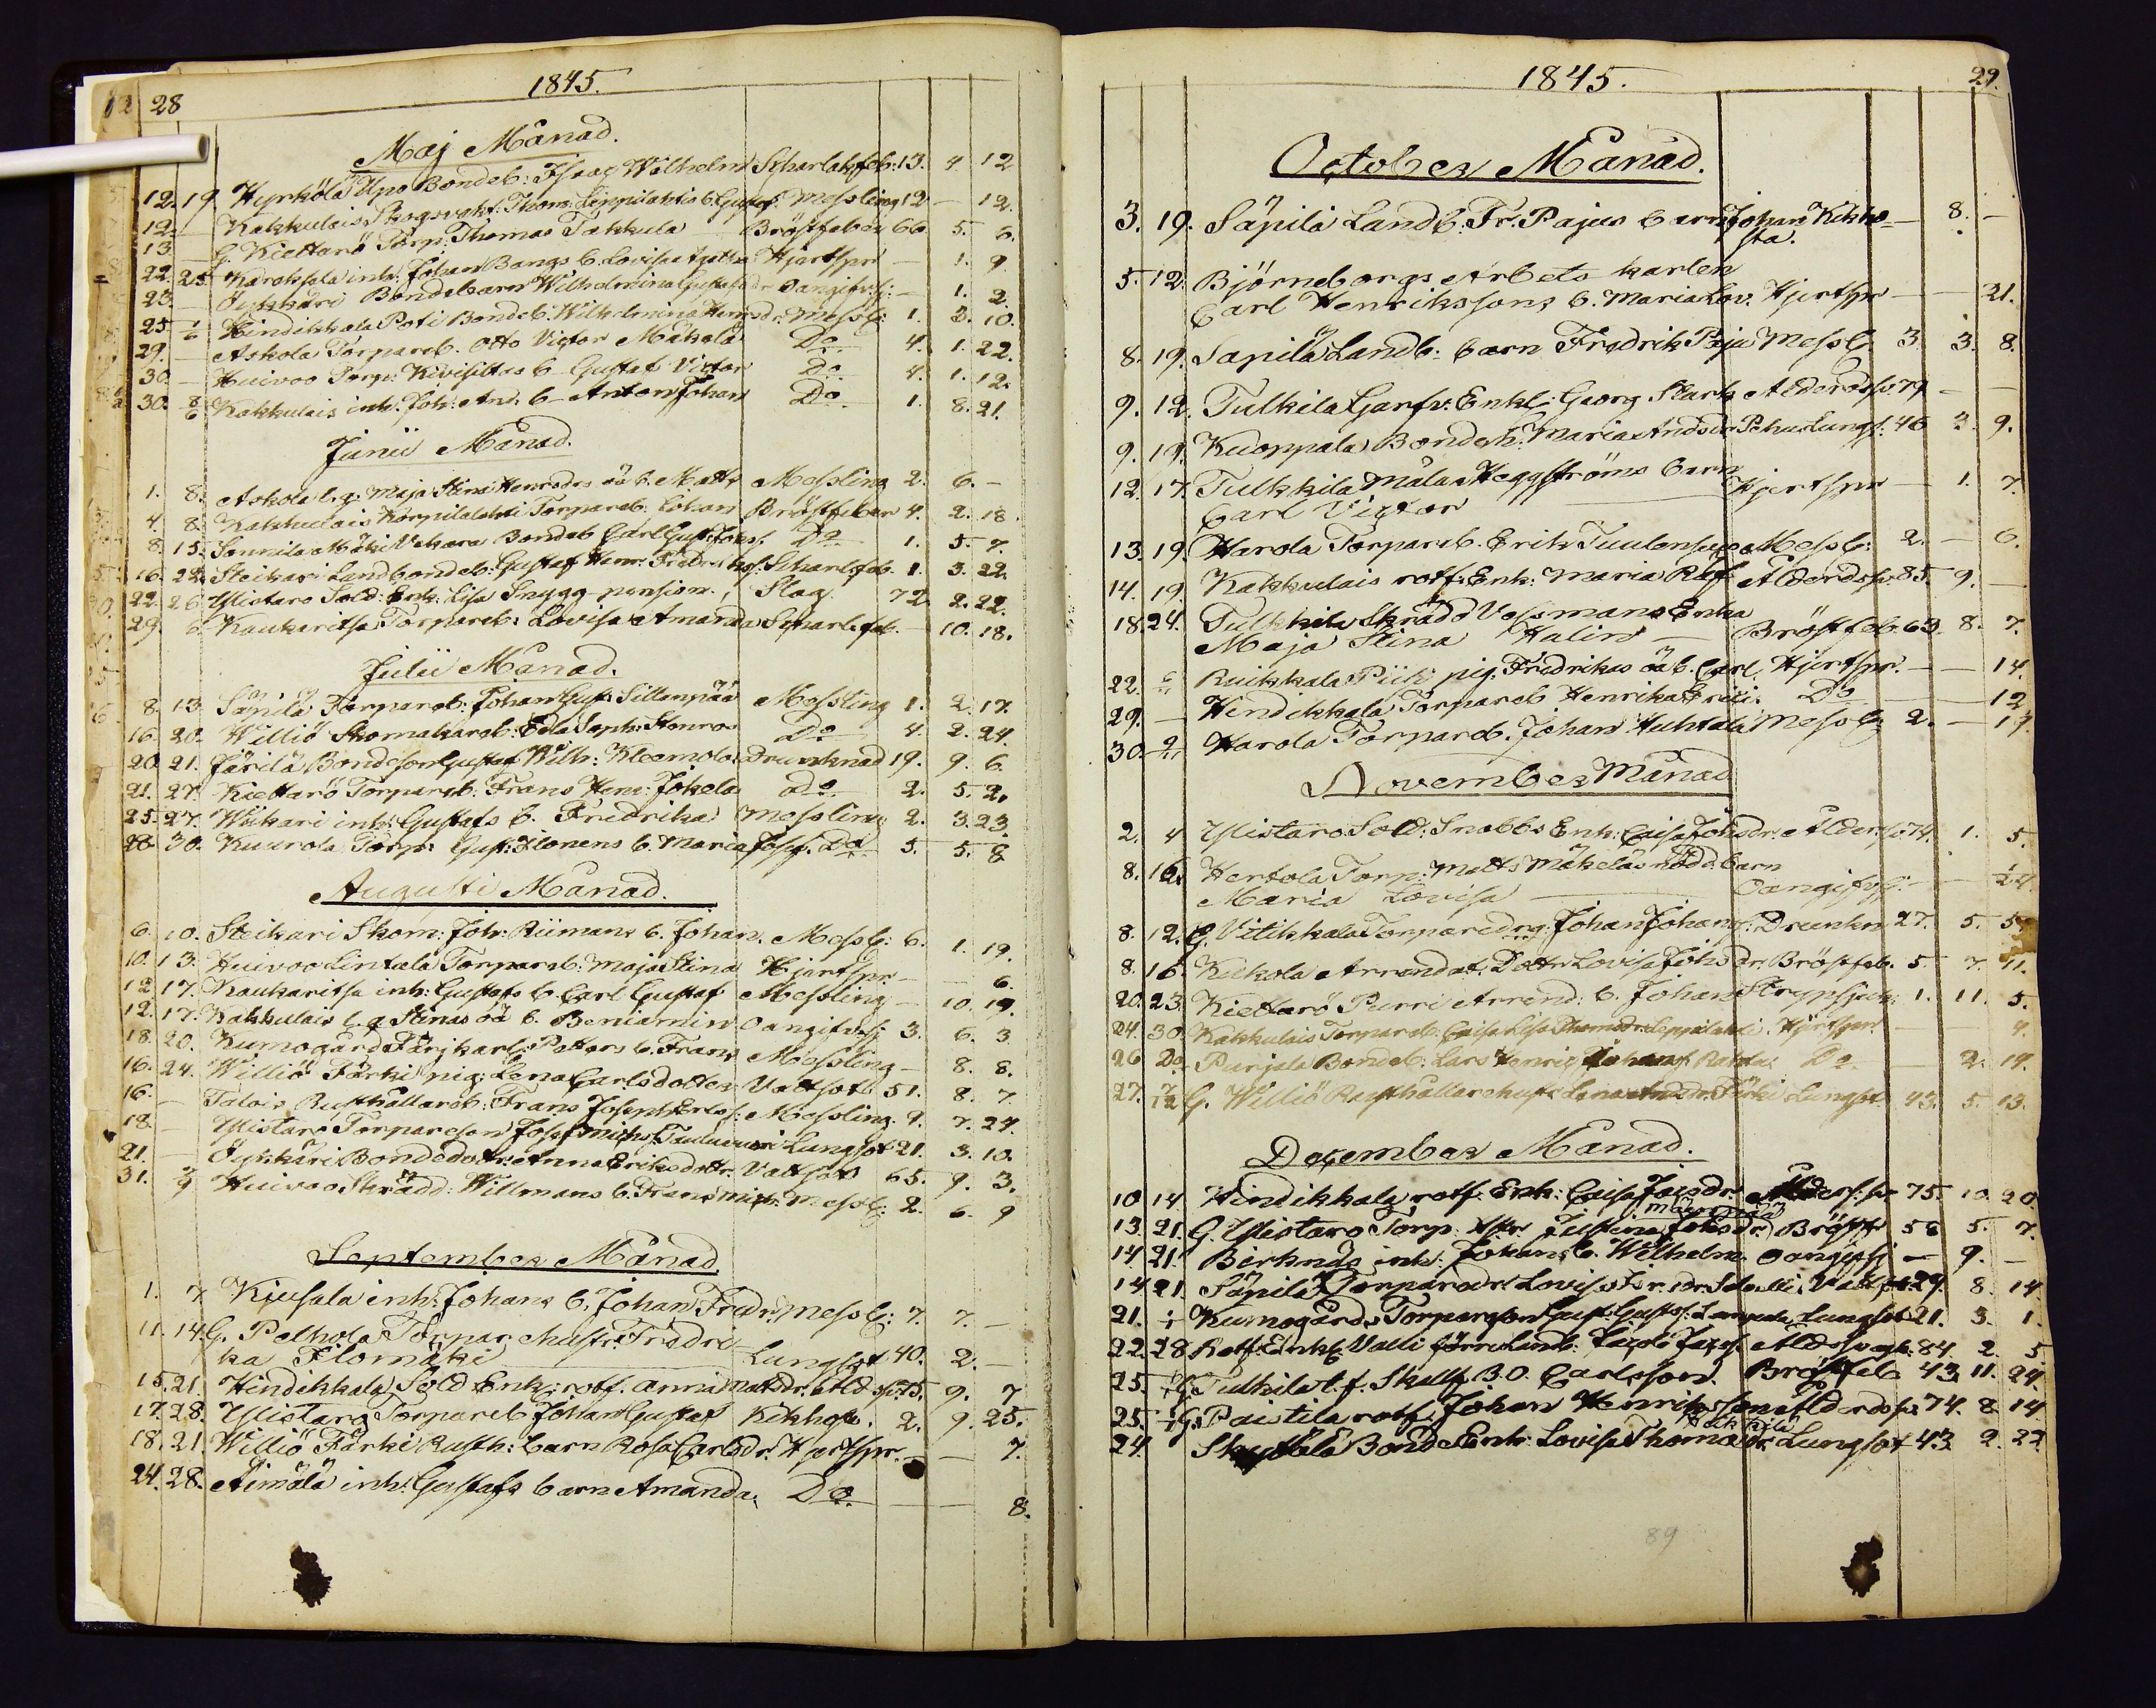 28
1845.
Maj Månad.
12. 19. Hyrkölä Upo Bondeb: Isaac Wilhelm Scharlakfeb: 13. 4. 12
12. — Kakkulais Skogsvakt. Thom: Leppilahtis b. Gustaf. Messling 12 — 12.
13 — G. Kiettarö Torp: Thomas Takkula Bröstfeber 66. 5. 6.
22. 25. Karoksela inh. Johan Bangs b. Lovisa Agatha Hjertspr — 1. 9.
23. — Öykkäri Bondebarn Wilhelmina Gustafsdr Oangifv: sj: — 1. 2.
25 1/6 Hindikkala Poti Bondeb: Wilhelmina Henrsdr. Messl: 1. 3. 10.
29. — Askola Torpareb. Otto Victor Mäkelä Do 4. 1. 22.
30. — Huivoo Torp: Kivisiltas b Gustaf Victor Do 4. 1. 12.
30. 8/6 Kakkulais inh. Joh: And. b. Anton Johan Do 1. 8. 21.
Junii Månad.
1. 8. Askola l.g. Maja Stina Henrsdrs oä b. Matts Messling 2. 6. —
4. 8. Kakkulais Korpilalehti Torpareb. Johan Bröstfeber 4. 2. 18.
8. 15. Sonnila Mäki Vekara Bondeb Carl Gust: Do 1. 5. 7.
16. 22. Steikari Landbondeb: Gustaf Henr: Fredriks: Scharl.feb. 1. 3. 22.
22. 26. Ylistaro Sold: Enk: Lisa Snygg pension. Slag 72. 2. 22.
29. 6. Kaukaritsa Torpareb: Lovisa Amanda Scharl.feb. — 10. 18.
Julii Månad.
8. 13. Säpilä Torpareb: Johan Gust: Sillanpää Messling 1. 2. 17.
16. 20. Williö Skomakareb: Edla Soph: Stenroos Do 4. 2. 24.
20. 21. Järilä Bondeson Gustaf Wilh: Kleemola Drunknad 19. 9. 6.
21. 27. Kiettarö Torpareb. Frans Henr: Jokela Do 2. 5. 2.
25. 27. Wiikari inh: Gustafs b. Fredrika Messling 2. 3. 23.
28 30. Kuurola Torp: Gust: Ilonens b. Maria Josef. Do 5. 5. 8
Augusti Månad.
6. 10. Steikari Skom: Joh: Riimans b. Johan. Messl: 6. 1. 19.
10. 13. Huivoo Lintala Torpareb. Maja Stina Hjertspr — — 6.
12 17. Kaukaritsa inh: Gustafs b. Carl Gustaf Messling — 10. 19.
12. 17. Kakkulais l.g Stinas oä b. Beniamin Oangifv: sj 3. 6. 3
18. 20. Kumogård Färjkarl: Petters b. Frans Messling — 8. 8.
16. 24. Williö Färki pig: Lena Carlsdotter Vattsot 51. 8. 7.
16. — Talois Rusthållareb: Frans Joseph Messling. 9. 7. 24.
18. — Ylistaro Torpareson Josef Mich: Lungsot 21. 3. 10.
21. — Öykkäri Bondedotr: Anna Eriksdotr. Vattsot 65. 9. 3.
31. 7/9 Huivoo Skrädd: Willmans b. Frans Mich: Messl: 2. 6. 9
September Månad.
1. 7 Kjusala inh: Johans b. Johan Fredr: Messl: 7. 7. —
11. 14. G. Pelhola Torpar Hustr: Fredri-
ka Flomäki Lungsot 40. 2. —
15. 21. Hindikkala Sold Enk: rotf. Anna Mattsdr. Åld. 75. 9. 7
17. 28. Ylistaro Torpareb Johan Gustaf Kikhost. 2. 9. 25.
18. 21. Williö Färki Rusth: barn Rosa Carlsdr. Hjertspr. — — 7.
24. 28. Äimälä inh: Gustafs barn Amanda. Do — — 8.
1845.
29.
October Månad.
3. 19. Säpilä Landb. Fr. Pajus barn Johan Kikho-
sta. — 8. —
5. 12. Björneborgs Arbetskarlen
Carl Henrikssons b. Maria Lov. Hjertspr — — 21.
8. 19. Säpilä Landb: barn Fredrik Paju Messl: 3. 3. 8.
9. 12. Tulkila Garfv: Enkl: Georg Stark Ålderdsv: 77 — —
9. 19. Kuoppala Bondeh. Maria Andsdr Lungs: 46 3. 9.
12. 17. Tulkkila Målar Heggströms barn
Carl Victor Hjertspr — 1. 7.
13. 19. Harola Torpareb. Erik Tuulensuu Messl: 2. — 6.
14. 19. Kakkulais rotf: Enk: Maria Ålderdsv: 85. 9. —
18. 24. Tulkkila Skrädd Vessmans Enka
Maja Stina Halin — Bröstfeb. 63. 8. 7.
22. Ruikkala Piik pig. Fredrikas oä b. Carl. Hjertspr. — — 14.
29. — Hindikkala Torpareb Henrika Do — — 12
30. Harola Torpareb. Johan Huhtala Messl: 2. — 19.
November Månad
2. 4 Ylistaro Sold: Snabbs Enk: Caisa Johsdr. Ålder: 74. 1. 5.
8. 16. Hertola Torp: Matts Mäkeläs barn
Maria Lovisa Oangifv: sj: — —
8. 12. G. Vitikkala Torparedrg Johan Johans: Drunkn 27. 5. 5
8. 16. Kukola Arrendat: Dottr Lovisa Johsdr. Bröstfeb. 5. 7. 11.
20. 23. Kiettarö Purri Arrend: b. Johan Strypsjuk: 1. 11. 5.
24. 30. Kakkulais Torpareb. Caisa Lisa Thomsdr: Leppilahti Hjertspr — — 4.
26 Do Punjala Bondeb: Lars Henric Johans: Do — 2. 19.
27. 7/12 G. Williö Rusthållarehustr Lena Andsdr. Färki Lungsot 43. 5. 13.
December Månad.
10 14 Hindikkala rotf: Enk: Caisa Ålders: 75. 10. 20.
13. 21. G. Ylistaro Torp. Hstr Justina Johsdr. Bröstf 58 5. 7.
14 21. Birknäs inh: Johans b. Wilhelm. Oangif sj — 9. —
14 21. Säpilä Torparedr. Lovisa Vattsot 29. 8. 14
21. Kumogårds Torpareson Gust: Gustfs: Lungsot 21. 3. 1.
22. 28 Rotf: Enkl: Valli förre Landb: Jacob Ålderdsv: 84. 2. 5
25. G. Tulkila t.f. Skallf. B.O. Carlsson. Bröstfeb 43. 11. 24.
25. G. Paistila rotf. Johan Henriksson Ålderdsv: 74. 8. 14
24. Skyttälä Bonde Enk: Lovisa Thomasdr. Lungsot 43. 2. 22.
89